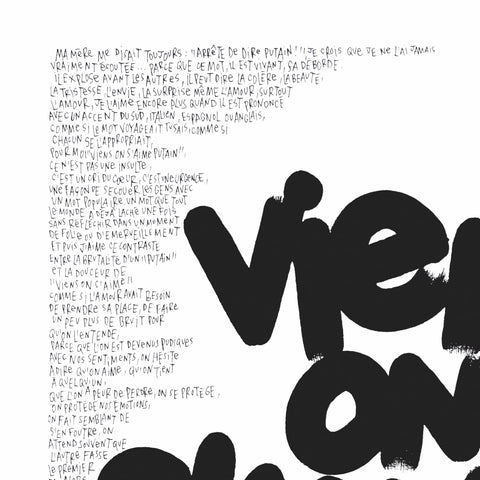 MA MÈRE ME DISAIT TOUJOURS : "ARRÊTE DE DIRE PUTAIN!" JE CROIS QUE JE NE L'AI JAMAIS
VRAIMENT ÉCOUTÉE... PARCE QUE CE MOT, IL EST VIVANT, ÇA DÉBORDE.
IL EXPLOSE AVANT LES AUTRES, IL PEUT DIRE LA COLÈRE, LA BEAUTÉ,
LA TRISTESSE, L'ENVIE, LA SURPRISE MÊME L'AMOUR, SURTOUT
L'AMOUR, JE L'AIME ENCORE PLUS QUAND IL EST PRONONCÉ
AVEC UN ACCENT DU SUD, ITALIEN, ESPAGNOL OU ANGLAIS,
COMME SI LE MOT VOYAGEAIT TU SAIS, COMME SI
CHACUN SE L'APPROPRIAIT,
POUR MOI "VIENS ON S'AIME PUTAIN!",
CE N'EST PAS UNE INSULTE,
C'EST UN CRI DU CŒUR, C'EST UNE URGENCE,
UNE FAÇON DE SECOUER LES GENS AVEC
UN MOT POPULAIRE UN MOT QUE TOUT
LE MONDE A DÉJÀ LÂCHÉ UNE FOIS
SANS RÉFLÉCHIR DANS UN MOMENT
DE FOLIE OU D'ÉMERVEILLEMENT
ET PUIS J'AIME CE CONTRASTE
ENTRE LA BRUTALITÉ D'UN "PUTAIN"
ET LA DOUCEUR DE
"VIENS ON S'AIME"
COMME SI L'AMOUR AVAIT BESOIN
DE PRENDRE SA PLACE, DE FAIRE
UN PEU PLUS DE BRUIT POUR
QU'ON L'ENTENDE,
PARCE QUE L'ON EST DEVENUS PUDIQUES
AVEC NOS SENTIMENTS, ON HÉSITE
À DIRE QU'ON AIME, QU'ON TIENT
À QUELQU'UN,
QUE L'ON A PEUR DE PERDRE, ON SE PROTÈGE,
ON PROTÈGE NOS ÉMOTIONS,
ON FAIT SEMBLANT DE
S'EN FOUTRE, ON
ATTEND SOUVENT QUE
L'AUTRE FASSE
LE PREMIER
vie
on